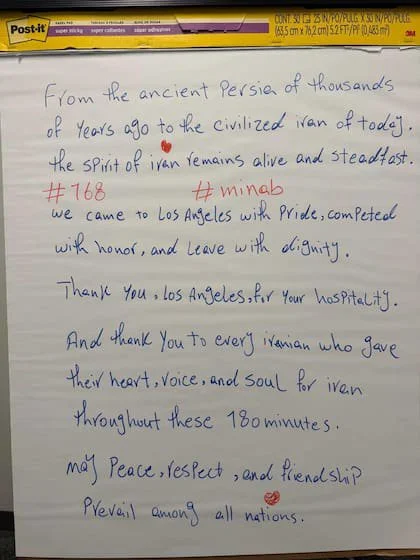 Post-it
super sticky
super collantes
super adhesivas
CONT. 30 25 IN/PO/PULG X 30 IN/PO/PULG
(63,5 cm x 76,2 cm) 5.2 FT²/PI² (0,483 m²)
3M
From the ancient Persia of thousands
of years ago to the civilized iran of today.
the spirit of iran remains alive and steadfast.
#168 #minab
we came to Los Angeles with pride, competed
with honor, and leave with dignity.
Thank you, Los Angeles, for your hospitality.
And thank you to every iranian who gave
their heart, voice, and soul for iran
throughout these 180 minutes.
may peace, respect, and friendship
prevail among all nations.